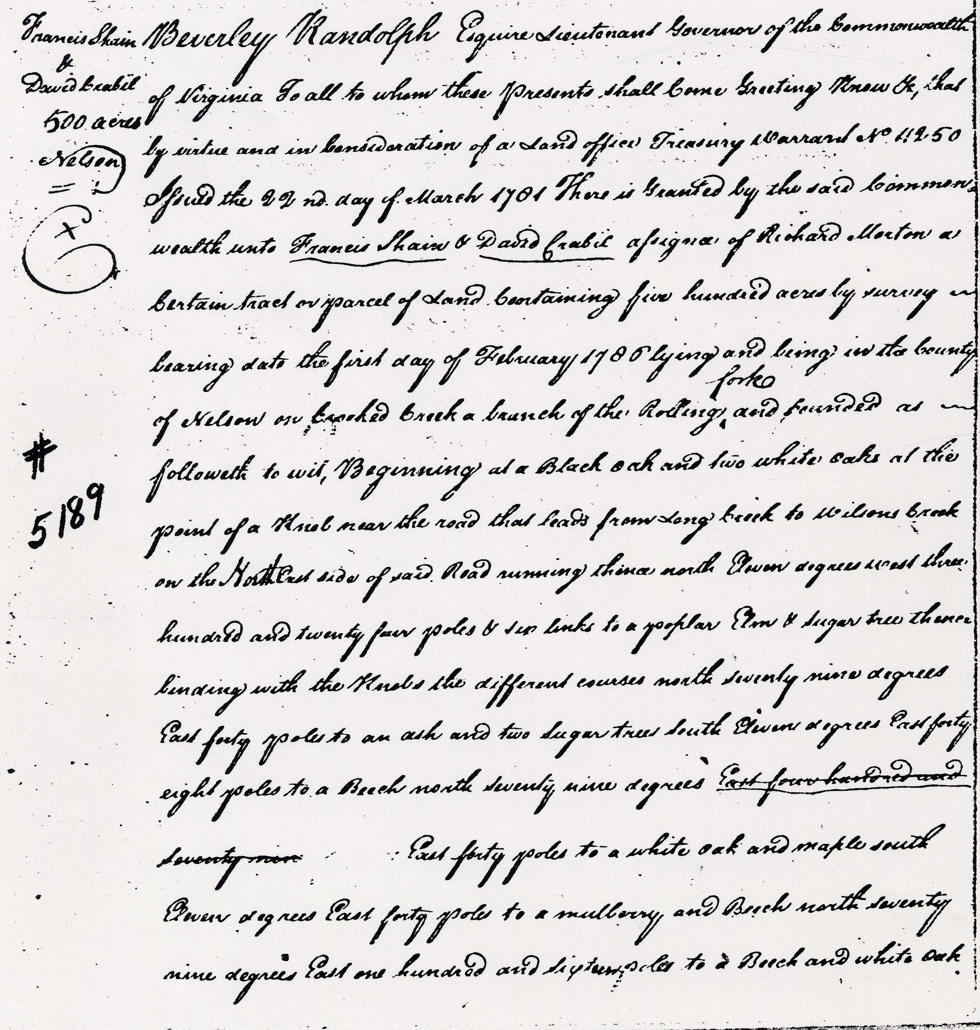 Francis Shain
&
David Crabil
500 acres
Nelson
#
5189
Beverley Randolph Esquire Lieutenant Governor of the Commonwealth
of Virginia To all to whom these Presents shall Come Greeting Know Ye, that
by virtue and in Consideration of a Land office Treasury Warrant No. 4250
Issued the 22nd. day of March 1781 There is Granted by the said Common=
wealth unto Francis Shain & David Crabil assignee of Richard Morton a
Certain tract or parcel of Land Containing five hundred acres by survey
bearing date the first day of February 1786 lying and being in the County
fork
of Nelson on Crooked Creek a branch of the Rolling and bounded as
followeth to wit, Beginning at a Black oak and two white oaks at the
point of a Knob near the road that leads from Long Creek to Wilsons Creek
on the North East side of said Road running thence north Eleven degrees west three
hundred and twenty four poles & six links to a poplar Elm & sugar tree thence
binding with the Knobs the different courses north seventy nine degrees
East forty poles to an ash and two sugar trees south Eleven degrees East forty
eight poles to a Beech north seventy nine degrees East four hundred and
seventy nine East forty poles to a white oak and maple south
Eleven degrees East forty poles to a mulberry and Beech north seventy
nine degrees East one hundred and sixteen poles to a Beech and white oak